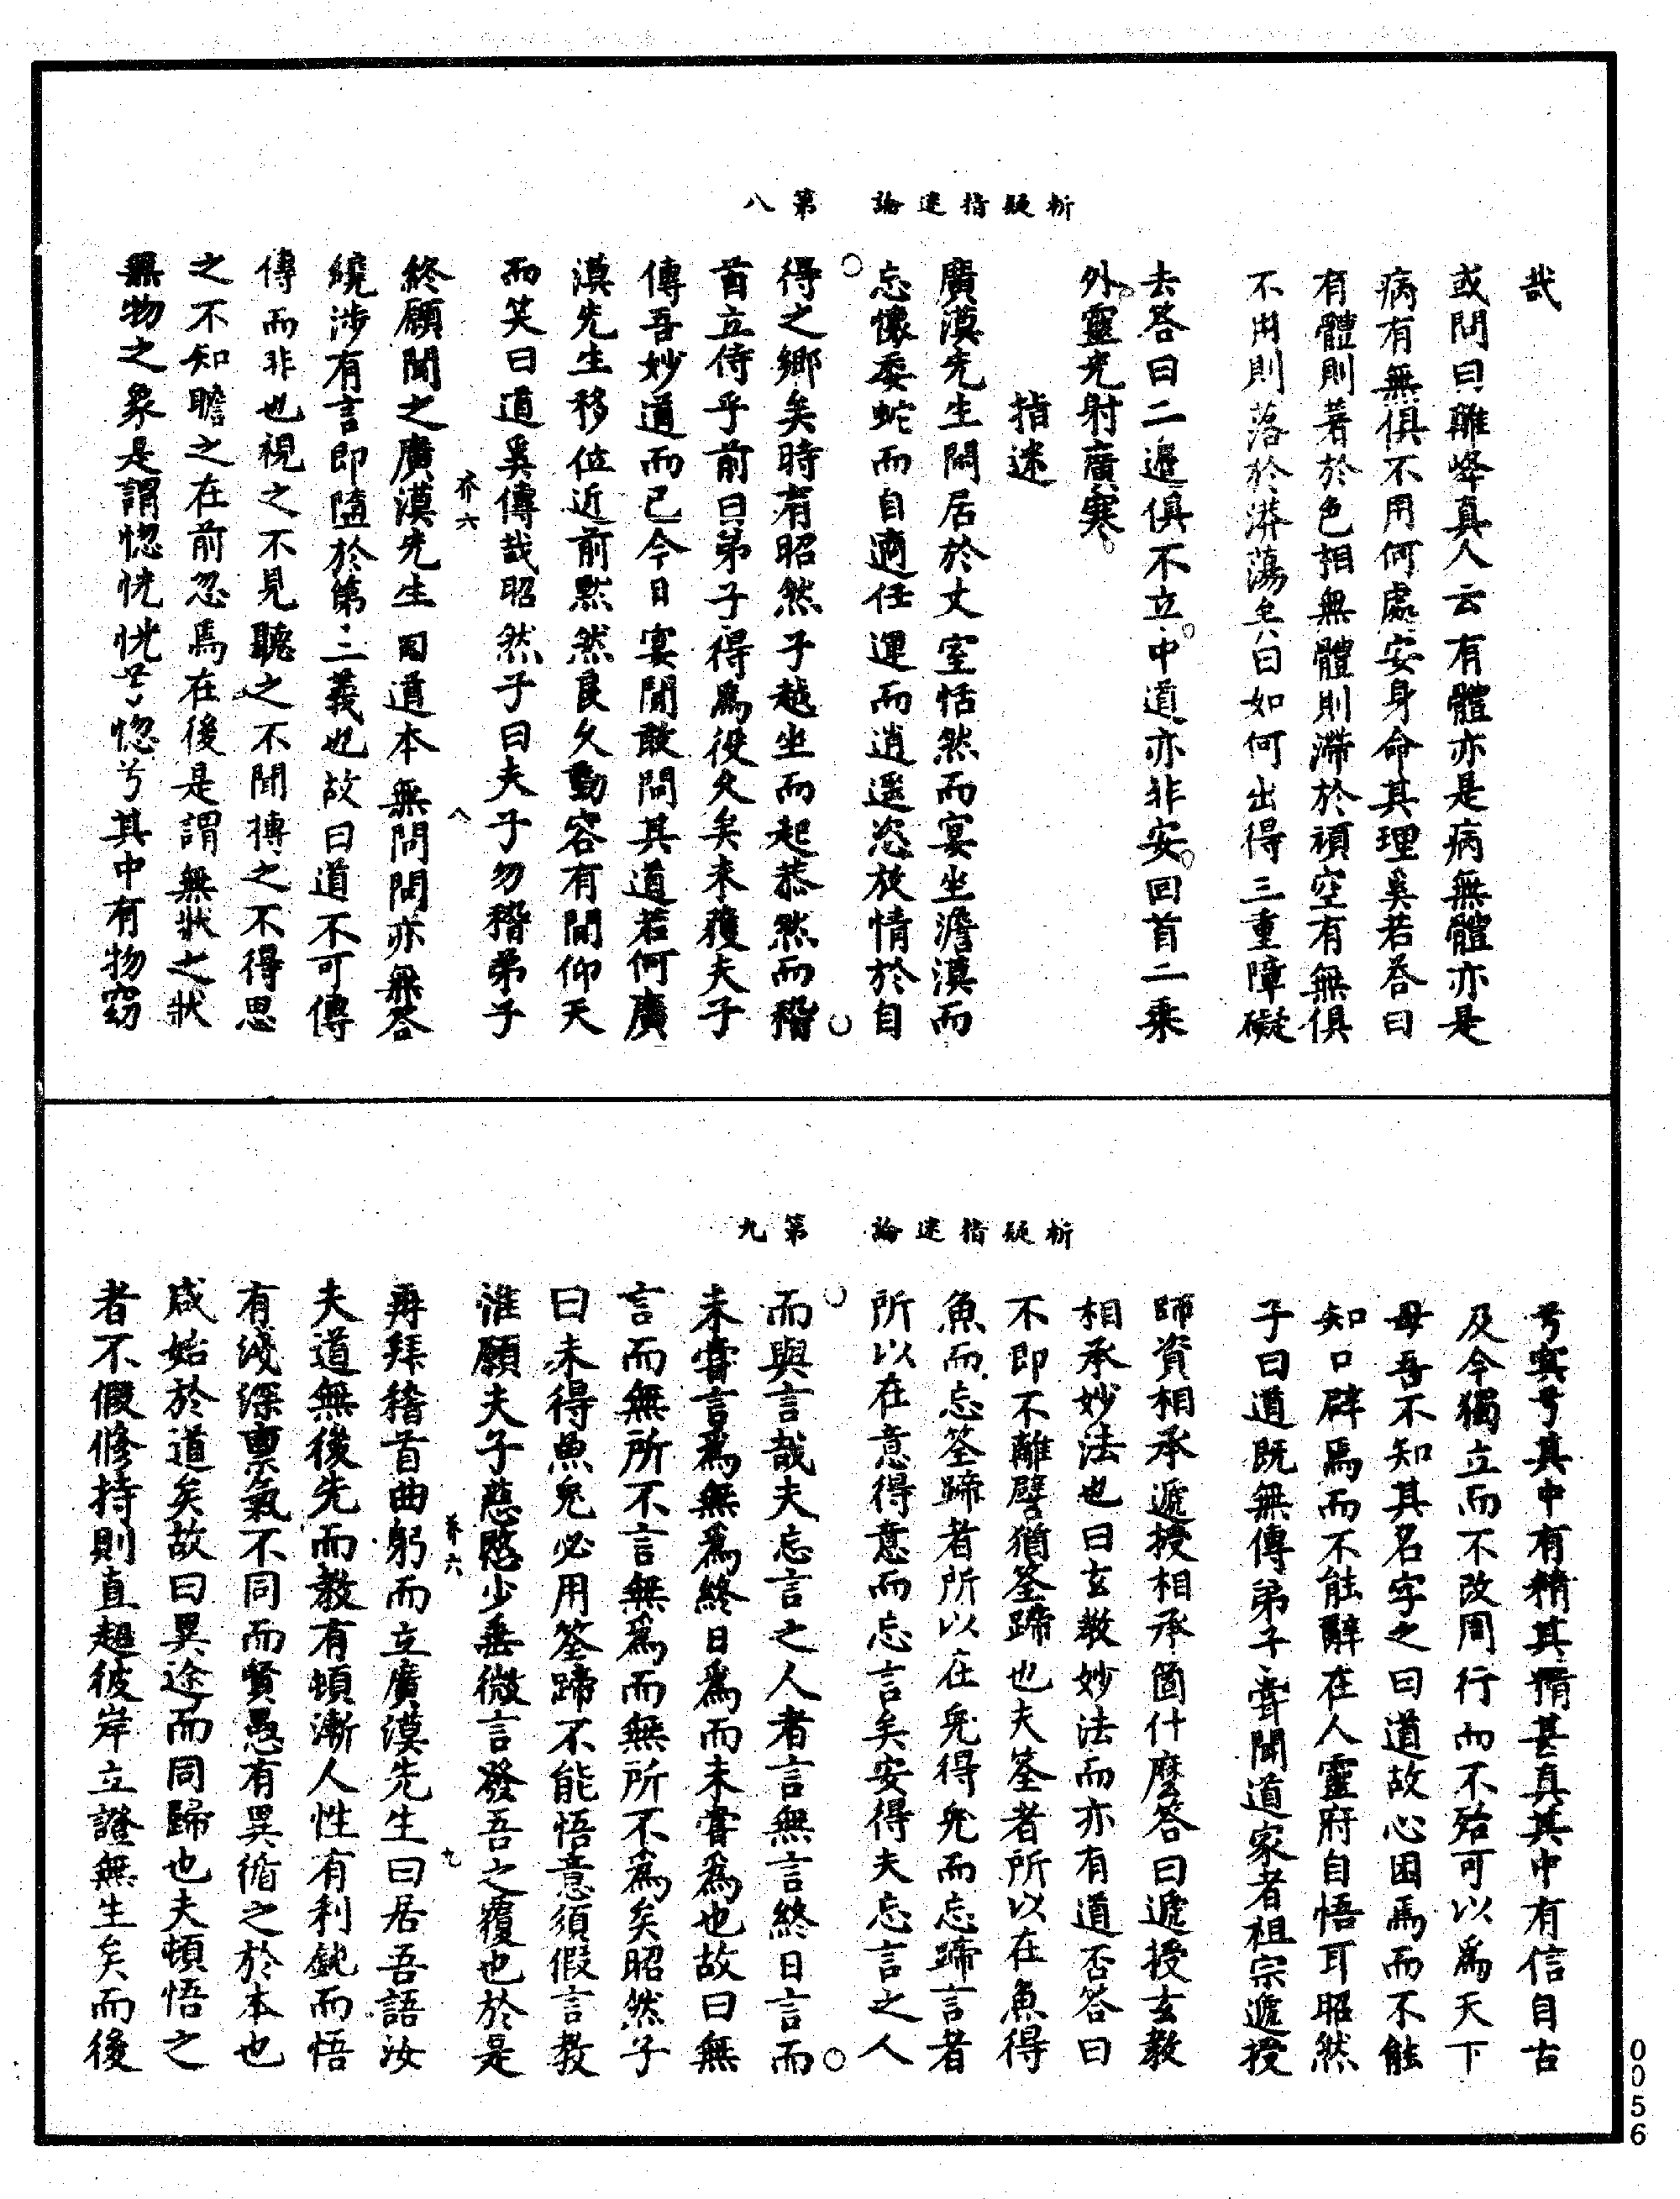 析疑指迷論　第八
哉
或問曰離峰真人云有體亦是病無體亦是
病有無俱不用何處安身命其理奚若荅曰
有體則著於色相無體則滯於頑空有無俱
不用則落於漭蕩至曰如何出得三重障礙
去荅曰二邊俱不立中道亦非安回首二乘
外靈光射廣寒
指迷
廣漠先生閑居於丈室恬然而宴坐澹漠而
忘懷委蛇而自適任運而逍遥恣放情於自
得之鄉矣時有昭然子越坐而起恭然而稽
首立侍乎前曰弟子得爲役久矣未獲夫子
傳吾妙道而已今日宴閒敢問其道若何廣
漠先生移位近前黙然良久動容有間仰天
而笑曰道奚傳哉昭然子曰夫子勿稽弟子
芥六　八
終願聞之廣漠先生曰道本無問問亦無荅
纔涉有言即墮於第二義也故曰道不可傳
傳而非也視之不見聽之不聞搏之不得思
之不知瞻之在前忽焉在後是謂無狀之狀
無物之象是謂惚恍恍兮惚兮其中有物窈
析疑指迷論　第九
兮冥兮其中有精其精甚真其中有信自古
及今獨立而不改周行而不殆可以爲天下
母吾不知其名字之曰道故心困焉而不能
知口辟焉而不能辭在人靈府自悟耳昭然
子曰道既無傳弟子甞聞道家者祖宗遞授
師資相承遞授相承箇什麽答曰遞授玄教
相承妙法也曰玄教妙法而亦有道否答曰
不即不離譬猶筌蹄也夫筌者所以在魚得
魚而忘筌蹄者所以在兔得兔而忘蹄言者
所以在意得意而忘言矣安得夫忘言之人
而與言哉夫忘言之人者言無言終日言而
未甞言爲無爲終日爲而未甞爲也故曰無
言而無所不言無爲而無所不爲矣昭然子
曰未得魚兔必用筌蹄不能悟意須假言教
淮願夫子慈愍少垂微言發吾之覆也於是
芥六　九
再拜稽首曲躬而立廣漠先生曰居吾語汝
夫道無後先而教有頓漸人性有利鈍而悟
有淺深禀氣不同而賢愚有異循之於本也
咸始於道矣故曰異途而同歸也夫頓悟之
者不假修持則直超彼岸立證無生矣而後
0056